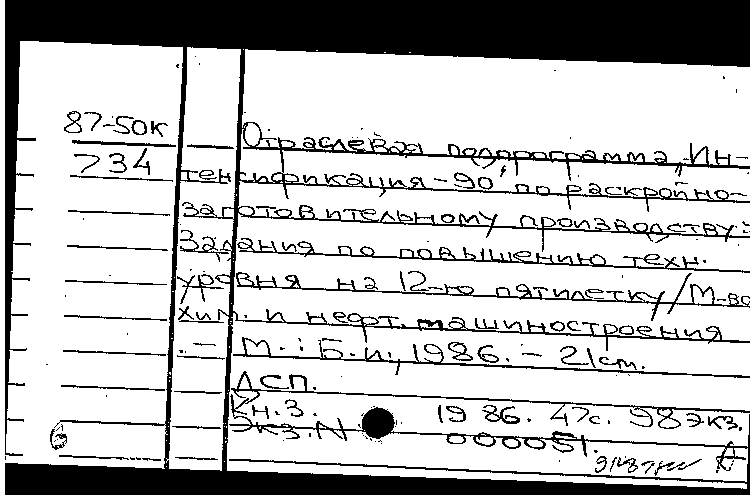 87-50к
734
Отраслевая подпрограмма „Ин-
тенсификация-90" по раскройно-
заготовительному производству:
Задания по повышению техн.
уровня на 12-ю пятилетку/М-во
хим. и нефт. машиностроения
. – М.: Б.и., 1986. – 21 см.
ДСП.
Кн. 3. 1986. 47с. 98 экз.
Экз. N 000051.
6 А